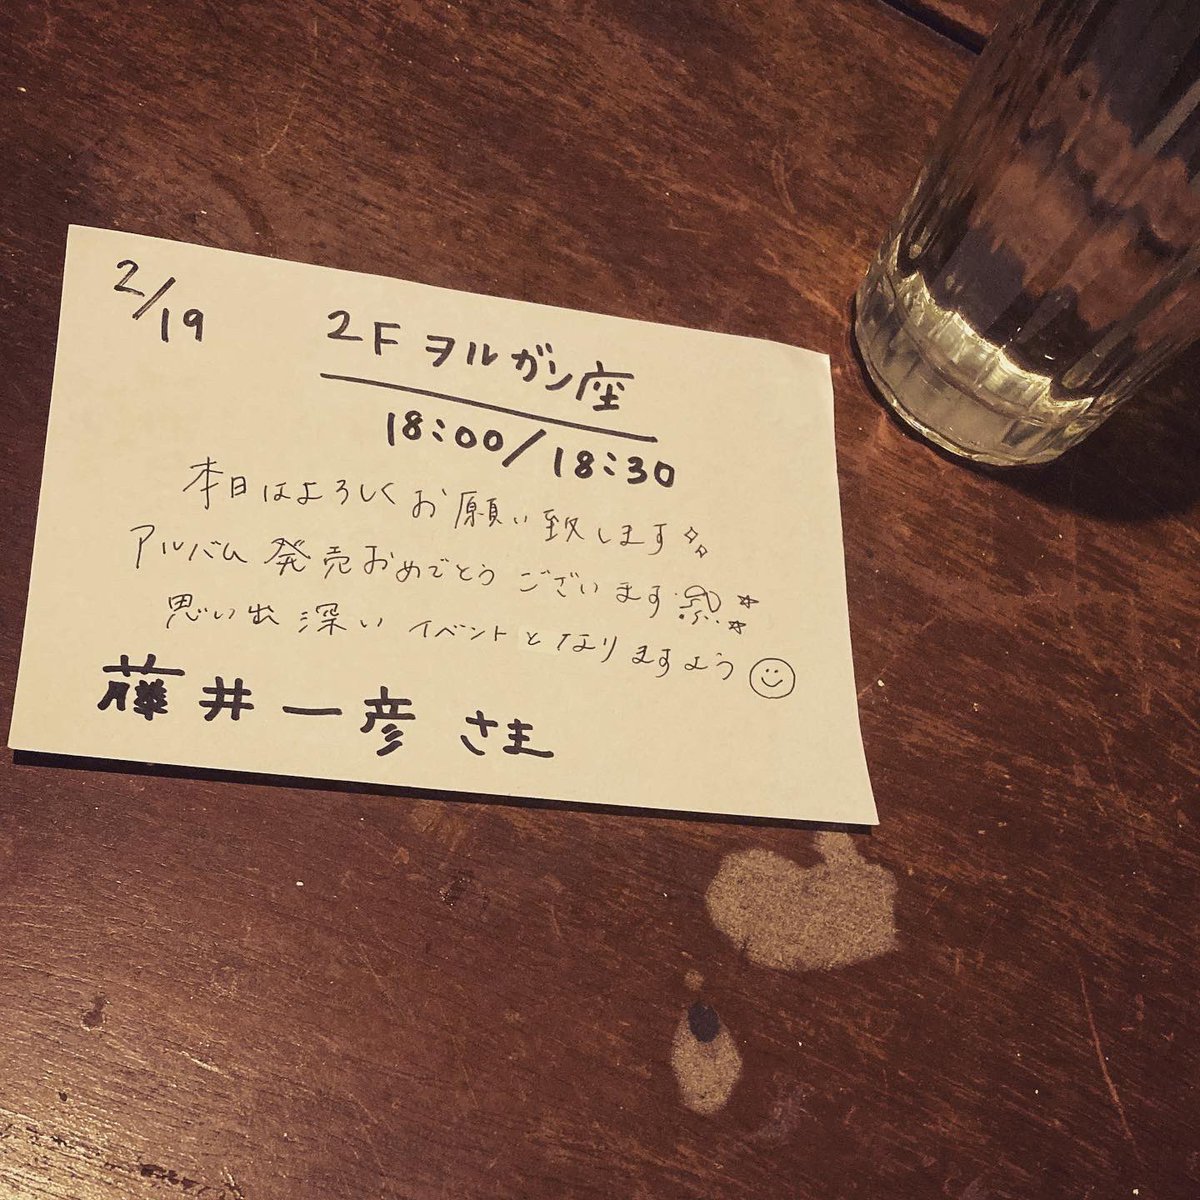 2/19
2F ヲルガン座
18:00/18:30
本日はよろしくお願い致します
アルバム発売おめでとうございます
思い出深いイベントとなりますよう
藤井一彦 さま